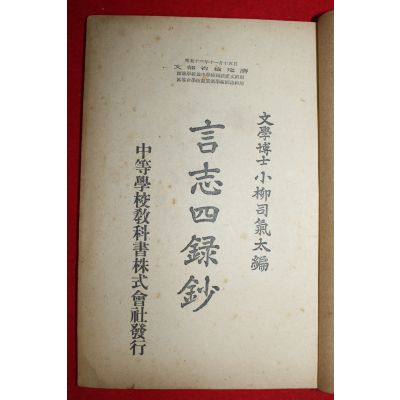 文學博士 小柳司氣太編
言志四録鈔
中等學校敎科書株式會社發行
文部省檢定濟